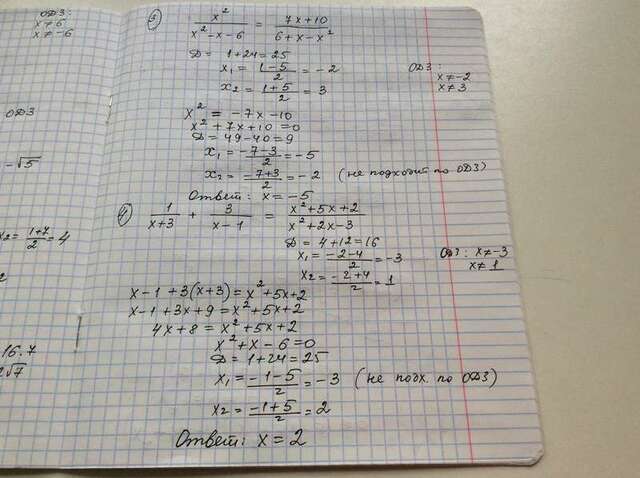 ОДЗ:
x≠6
x≠-6
ОДЗ
-√5
x₂=(1+7)/2=4
2
16.7
2√7
3) x²/(x²-x-6) = (7x+10)/(6+x-x²)
D = 1+24=25
x₁ = (1-5)/2 = -2
x₂ = (1+5)/2 = 3
ОДЗ:
x≠-2
x≠3
x² = -7x-10
x²+7x+10=0
D=49-40=9
x₁ = (-7-3)/2 = -5
x₂ = (-7+3)/2 = -2 (не подходит по ОДЗ)
Ответ: x=-5
4) 1/(x+3) + 3/(x-1) = (x²+5x+2)/(x²+2x-3)
D = 4+12=16
x₁ = (-2-4)/2 = -3
x₂ = (-2+4)/2 = 1
ОДЗ: x≠-3
x≠1
x-1+3(x+3)=x²+5x+2
x-1+3x+9=x²+5x+2
4x+8=x²+5x+2
x²+x-6=0
D=1+24=25
x₁ = (-1-5)/2 = -3 (не подх. по ОДЗ)
x₂ = (-1+5)/2 = 2
Ответ: x=2